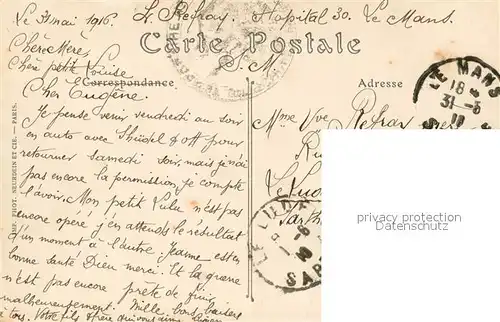 Le 31 mai 1916. H. Refray. Hopital 30. Le Mans.
Carte Postale
S. M.
Chère Mère,
Chère petite Louise
Cher Eugène.
Correspondance
Adresse
Je pense venir vendredi au soir
en auto avec
retourner samedi soir, mais je n'ai
pas encore la permission, je compte
l'avoir. Mon petit Lulu n'est pas
encore opéré j'en attends le résultat
d'un moment à l'autre. Jeanne est en
bonne santé Dieu merci. Et la guerre
n'est pas encore prête de finir
malheureusement. Mille bons baisers
à tous. Votre fils & frère qui vous aime
Mme Vve Refray
IMP. PHOT. NEURDEIN ET CIE. - PARIS.
LE MANS
31-5
LE LUDE
privacy protection
Datenschutz